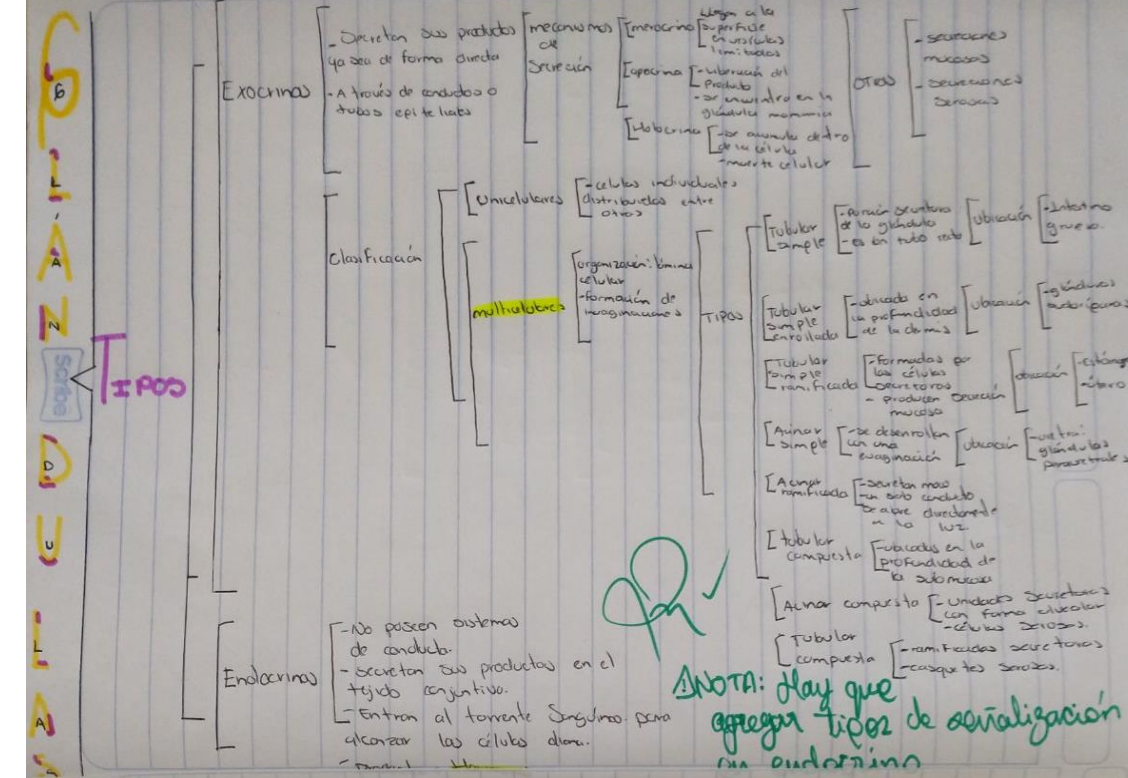 GLÁNDULAS
Scribe
TIPOS
Exocrinas
- Secretan sus productos
ya sea de forma directa
- A través de conductos o
tubos epiteliales
mecanismos
de
secreción
merocrina
llegan a la
superficie
en vesículas
limitadas
apocrina
- Liberación del
Producto
- se encuentra en la
glándula mamaria
Holocrina
- se acumula dentro
de la célula
- muerte celular
OTROS
- secreciones
mucosas
- secreciones
serosas
Clasificación
Unicelulares
- células individuales
distribuidas entre
otros
multicelulares
organización: lámina
celular
- formación de
invaginaciones
TIPOS
Tubular
simple
- porción secretora
de la glándula
- es un tubo recto
ubicación
- Intestino
grueso.
Tubular
simple
enrollada
- ubicada en
la profundidad
de la dermis
ubicación
- glándulas
sudoríparas
Tubular
simple
ramificada
- Formadas por
las células
secretoras
- producen secreción
mucosa
ubicación
- útero
Acinar
simple
- se desenrollan
en una
evaginación
ubicación
- uretra:
glándulas
parauretrales
Acinar
ramificada
- secretan moco
- un solo conducto
se abre directamente
a la luz.
tubular
compuesta
- ubicadas en la
profundidad de
la submucosa
Acinar compuesta
- unidades secretoras
con forma alveolar
- células serosas.
Tubular
compuesta
- ramificadas secretoras
- casquetes serosos.
Endocrinas
- No poseen sistemas
de conducto.
- secretan sus productos en el
tejido conjuntivo.
- Entran al torrente Sanguíneo para
alcanzar las células diana.
NOTA: Hay que
agregar tipos de señalización
en endocrino